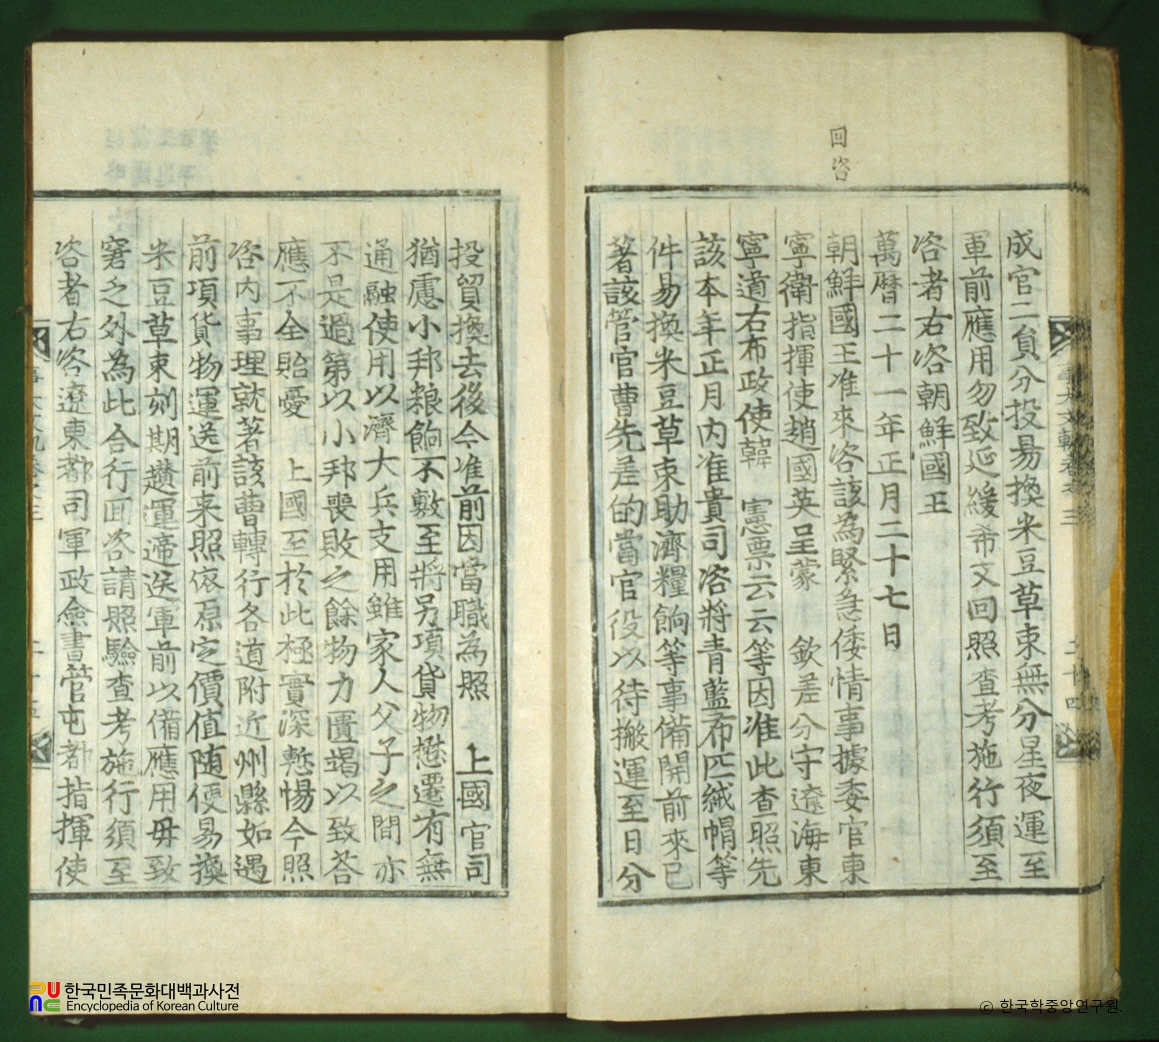 回咨
成官二負分投易換米豆草束無分星夜運至
軍前應用勿致延緩希文回照查考施行須至
咨者右咨朝鮮國王
萬曆二十一年正月二十七日
朝鮮國王准來咨該為緊急倭情事據委官東
寧衛指揮使趙國英呈蒙 欽差分守遼海東
寧道右布政使韓 憲票云云等因准此查照先
該本年正月內准貴司咨將青藍布匹絨帽等
件易換米豆草束助濟糧餉等事備開前來已
著該管官曹先差的當官役以待搬運至日分
投貿換去後今准前因當職為照 上國官司
猶慮小邦粮餉不敷至將另項貨物懋遷有無
通融使用以濟大兵支用雖家人父子之間亦
不是過第以小邦喪敗之餘物力匱竭以致答
應不全貽憂 上國至於此極實深慙惕今照
咨內事理就著該曹轉行各道附近州縣如遇
前項貨物運送前来照依原定價值随便易換
米豆草束刻期趲運遞送軍前以備應用毋致
窘乏外為此合行回咨請照驗查考施行須至
咨者右咨遼東都司軍政僉書管屯都指揮使
한국민족문화대백과사전
Encyclopedia of Korean Culture
© 한국학중앙연구원